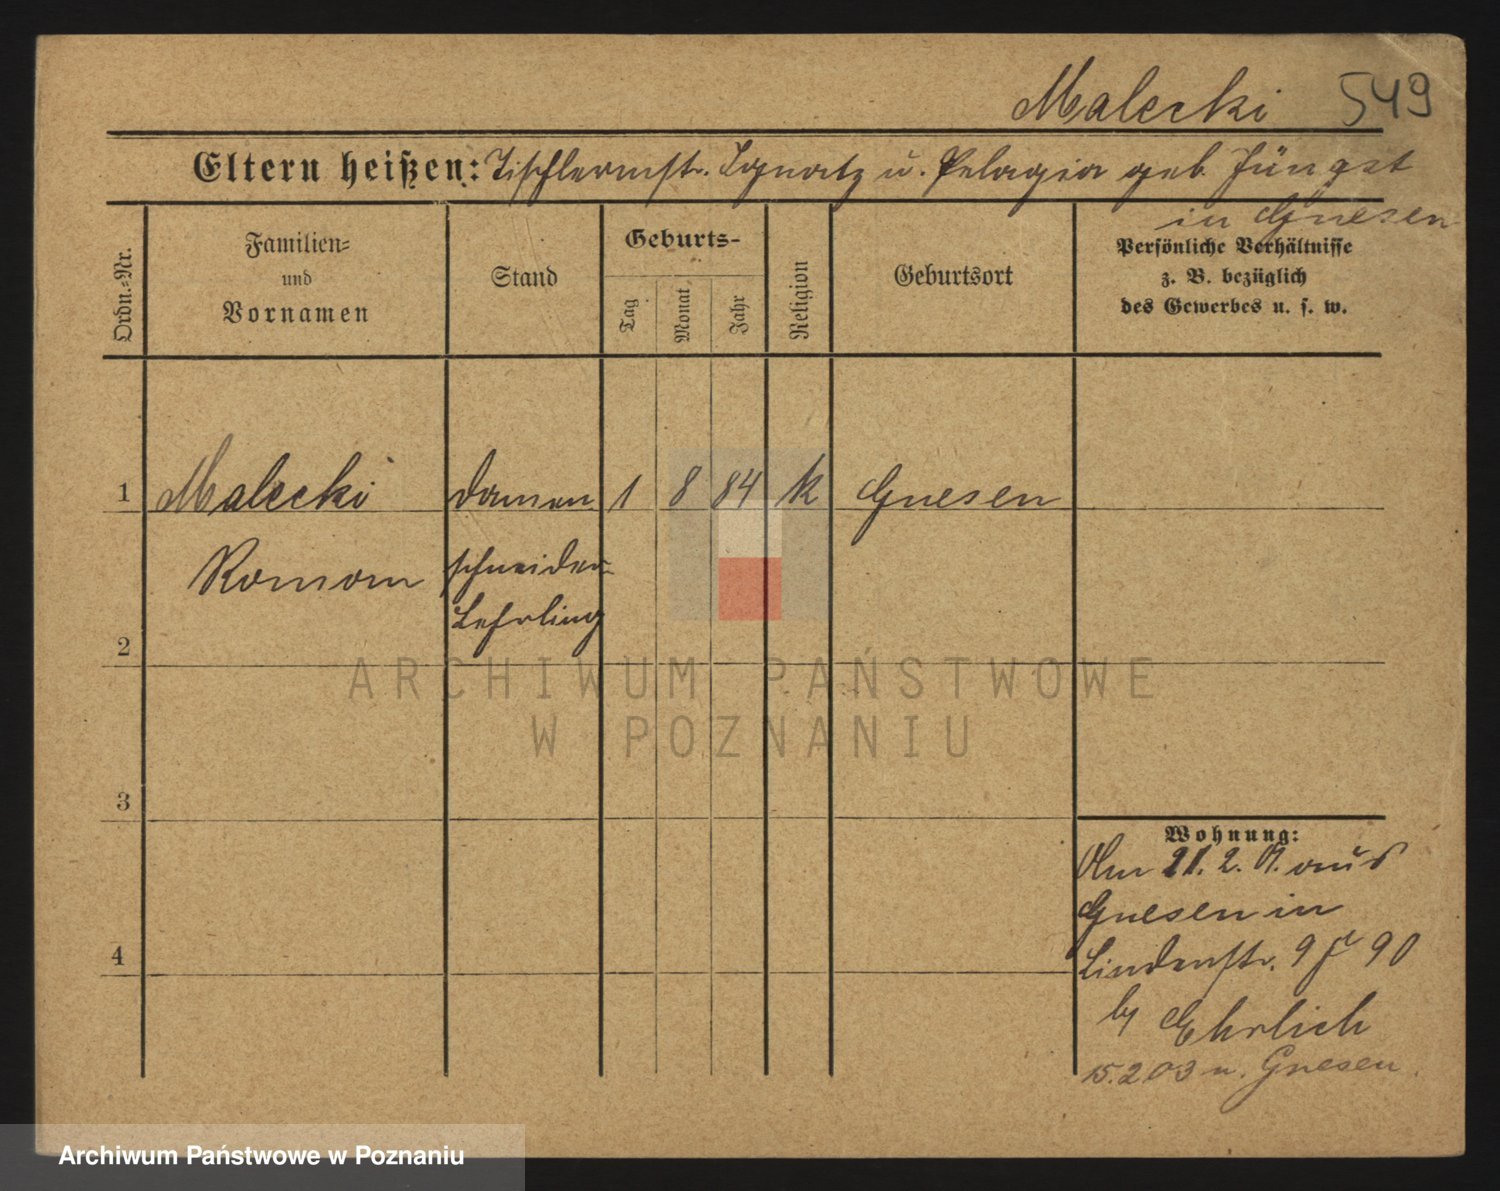 Malecki 549
Eltern heißen: Tischlermstr. Ignatz u. Pelagia geb. Jüngst
in Gnesen
Ordn.-Nr.
Familien-
und
Vornamen
Stand
Geburts-
Tag
Monat
Jahr
Religion
Geburtsort
Persönliche Verhältnisse
z. B. bezüglich
des Gewerbes u. s. w.
1 Malecki Damen 1 8 84 k Gnesen
Roman schneider-
Lehrling
2
ARCHIWUM PAŃSTWOWE
W POZNANIU
3
Wohnung:
Am 21. 2. 01. aus
Gnesen in
4
Lindenstr. 9 90
by Ehrlich
15.2 03 n. Gnesen.
Archiwum Państwowe w Poznaniu